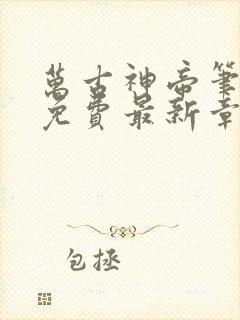 萬古神帝筆
免費最新章
包拯